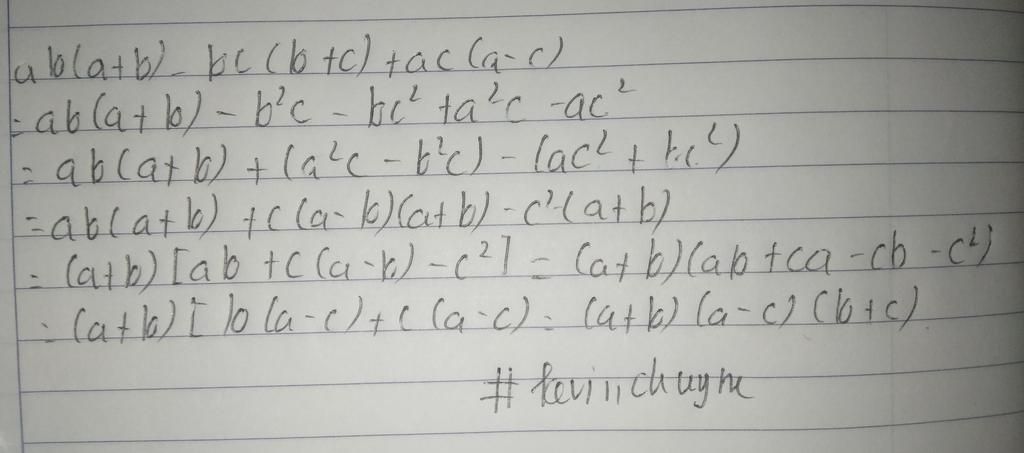 ab(a+b) - bc(b+c) + ac(a-c)
= ab(a+b) - b²c - bc² + a²c - ac²
= ab(a+b) + (a²c - b²c) - (ac² + bc²)
= ab(a+b) + c(a-b)(a+b) - c²(a+b)
= (a+b)[ab + c(a-b) - c²] = (a+b)(ab + ca - cb - c²)
= (a+b)[b(a-c) + c(a-c) = (a+b)(a-c)(b+c)